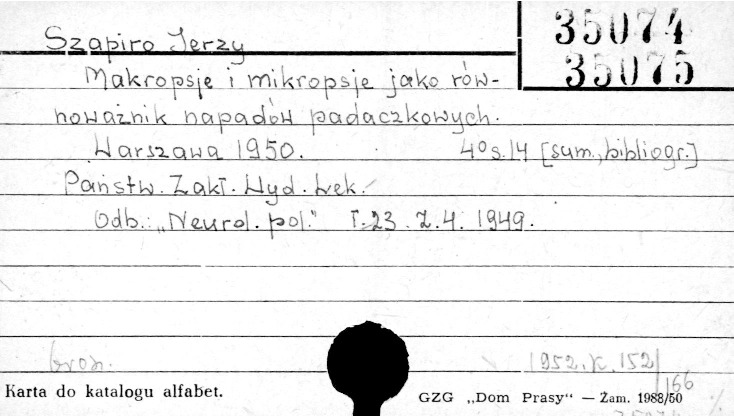 35074
35075
Szapiro Jerzy
Makropsje i mikropsje jako rów-
noważnik napadów padaczkowych.
Warszawa 1950. 4° s. 14 [sum., bibliogr.]
Państw. Zakł. Wyd. Lek.
Odb.: „Neurol. pol." T. 23. Z. 4. 1949.
brosz.
1952. K. 152/
166
Karta do katalogu alfabet.
GZG „Dom Prasy" — Zam. 1988/50